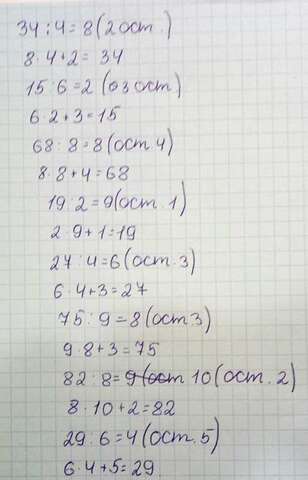 34 : 4 = 8 (2 ост.)
8 · 4 + 2 = 34
15 : 6 = 2 (оз ост)
6 · 2 + 3 = 15
68 : 8 = 8 (ост. 4)
8 · 8 + 4 = 68
19 : 2 = 9 (ост. 1)
2 · 9 + 1 = 19
27 : 4 = 6 (ост. 3)
6 · 4 + 3 = 27
75 : 9 = 8 (ост 3)
9 · 8 + 3 = 75
82 : 8 = 9 (ост 10 (ост. 2)
8 · 10 + 2 = 82
29 : 6 = 4 (ост. 5)
6 · 4 + 5 = 29.